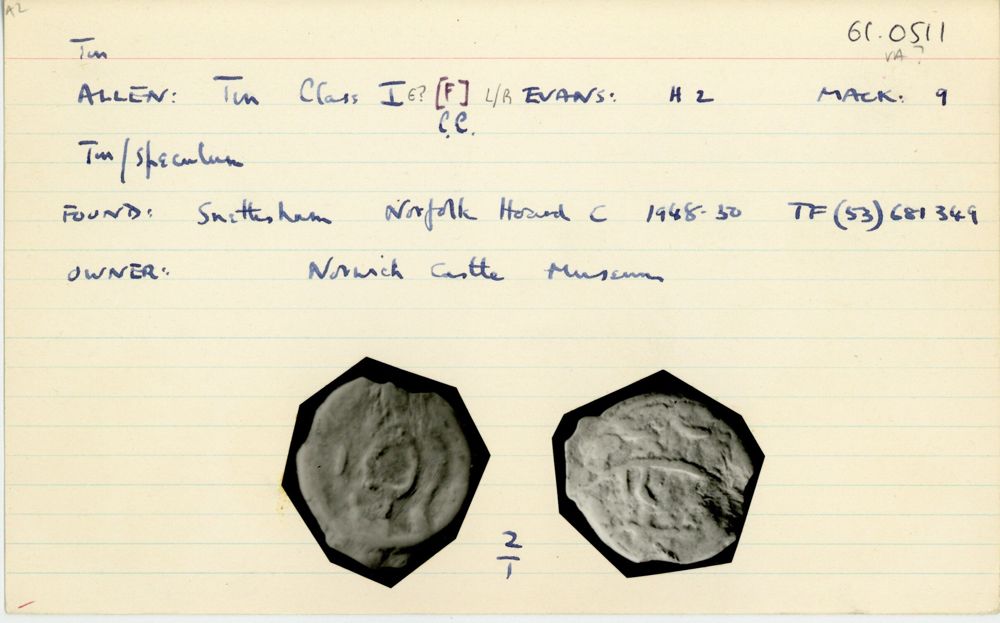 A2
61.0511
Tin
VA?
ALLEN: Tin Class I E? [F] L/R EVANS: H 2 MACK: 9
C.C.
Tin/speculum
FOUND: Snettisham Norfolk Hoard C 1948-50 TF (53) 681 349
OWNER: Norwich Castle Museum
2
1